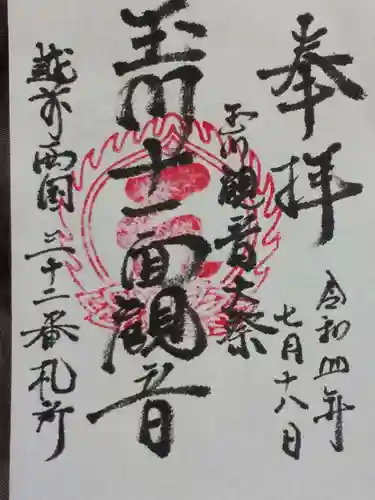 奉拝
令和四年
七月十八日
玉川観音大祭
玉川十一面観音
越前西国三十二番札所